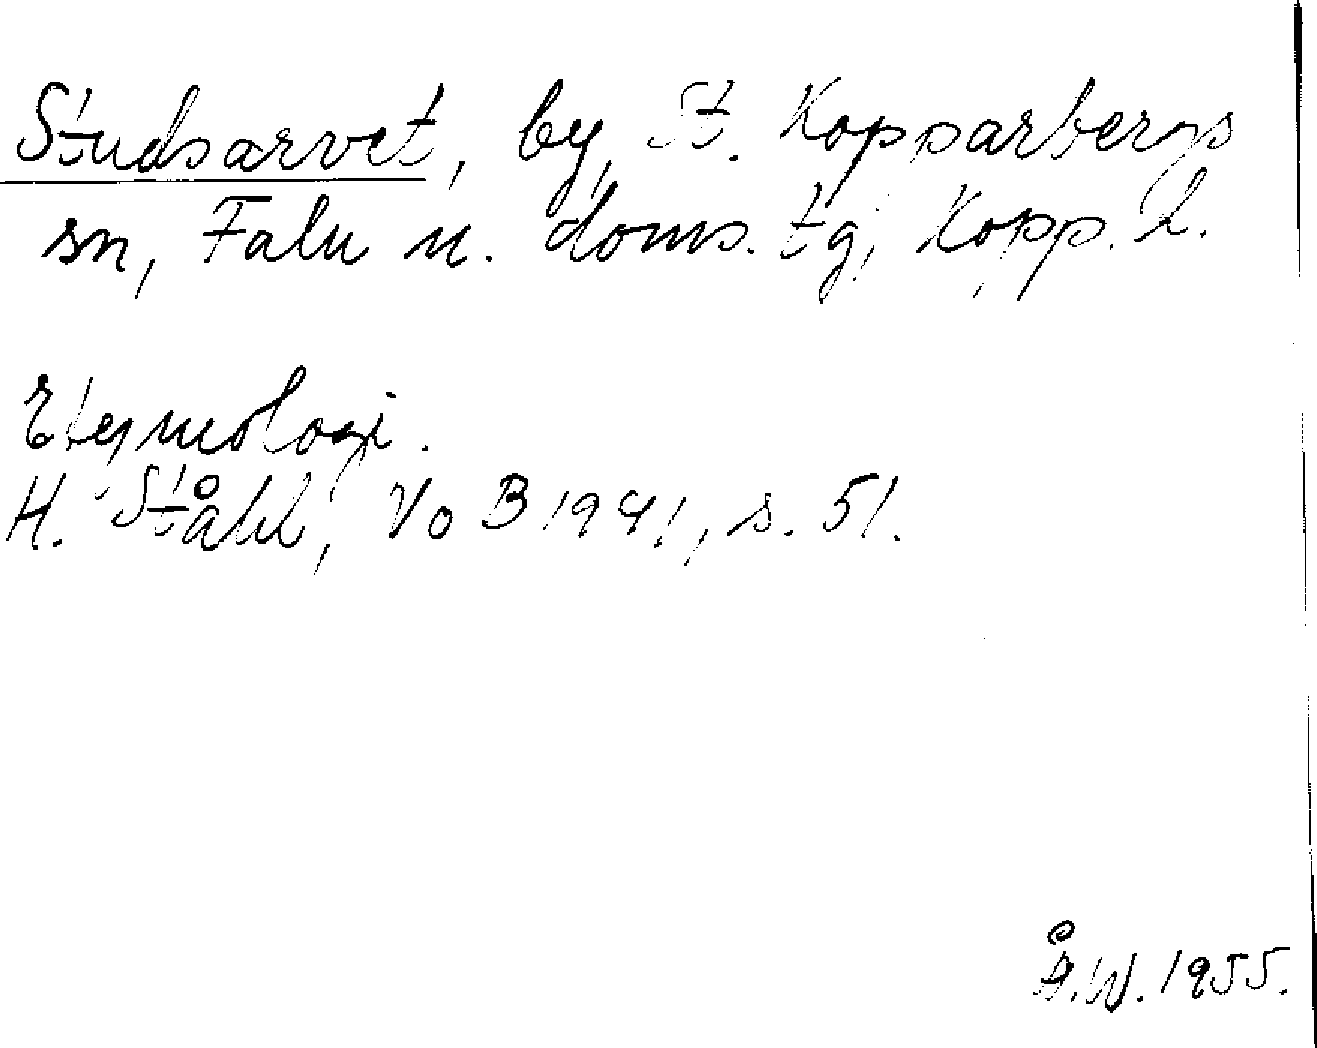 Studsarvet, by, St. Kopparbergs
sn, Falu n. doms. tg, Kopp. l.
Etymologi.
H. Ståhl, NoB 1941, s. 51.
Å.W. 1955.